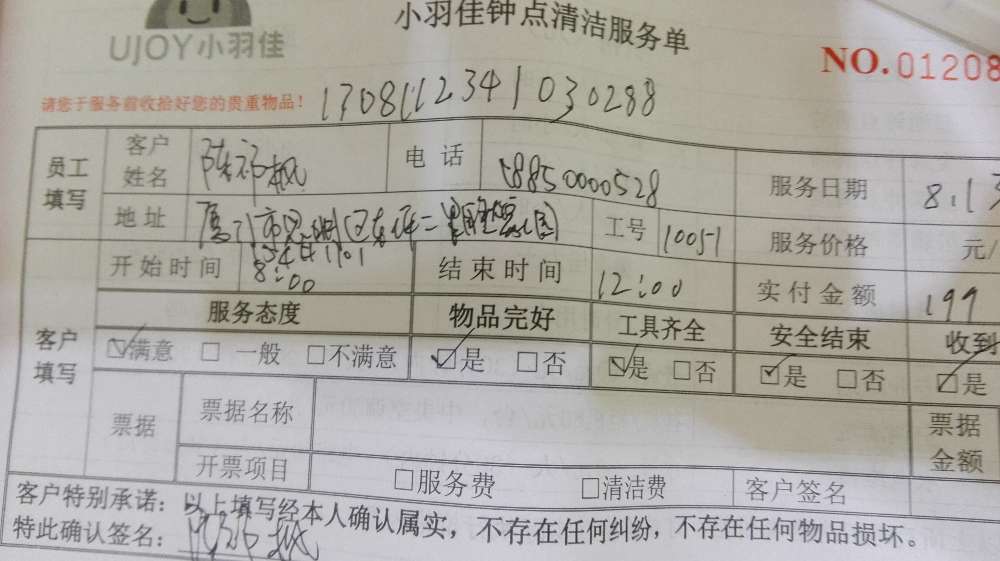 小羽佳钟点清洁服务单
UJOY小羽佳
NO.01208
请您于服务前收拾好您的贵重物品！
17081112341030288
员工填写 客户姓名 陈 枫 电话 18850000528 服务日期 8.13
地址 厦门市 区 二 园 工号 10051 服务价格 元/
开始时间 8:00 结束时间 12:00 实付金额 199
客户填写 服务态度 物品完好 工具齐全 安全结束 收到
☑满意 □一般 □不满意 ☑是 □否 ☑是 □否 ☑是 □否 ☑是
票据 票据名称 票据金额
开票项目 □服务费 □清洁费 客户签名
客户特别承诺：以上填写经本人确认属实，不存在任何纠纷，不存在任何物品损坏。
特此确认签名：